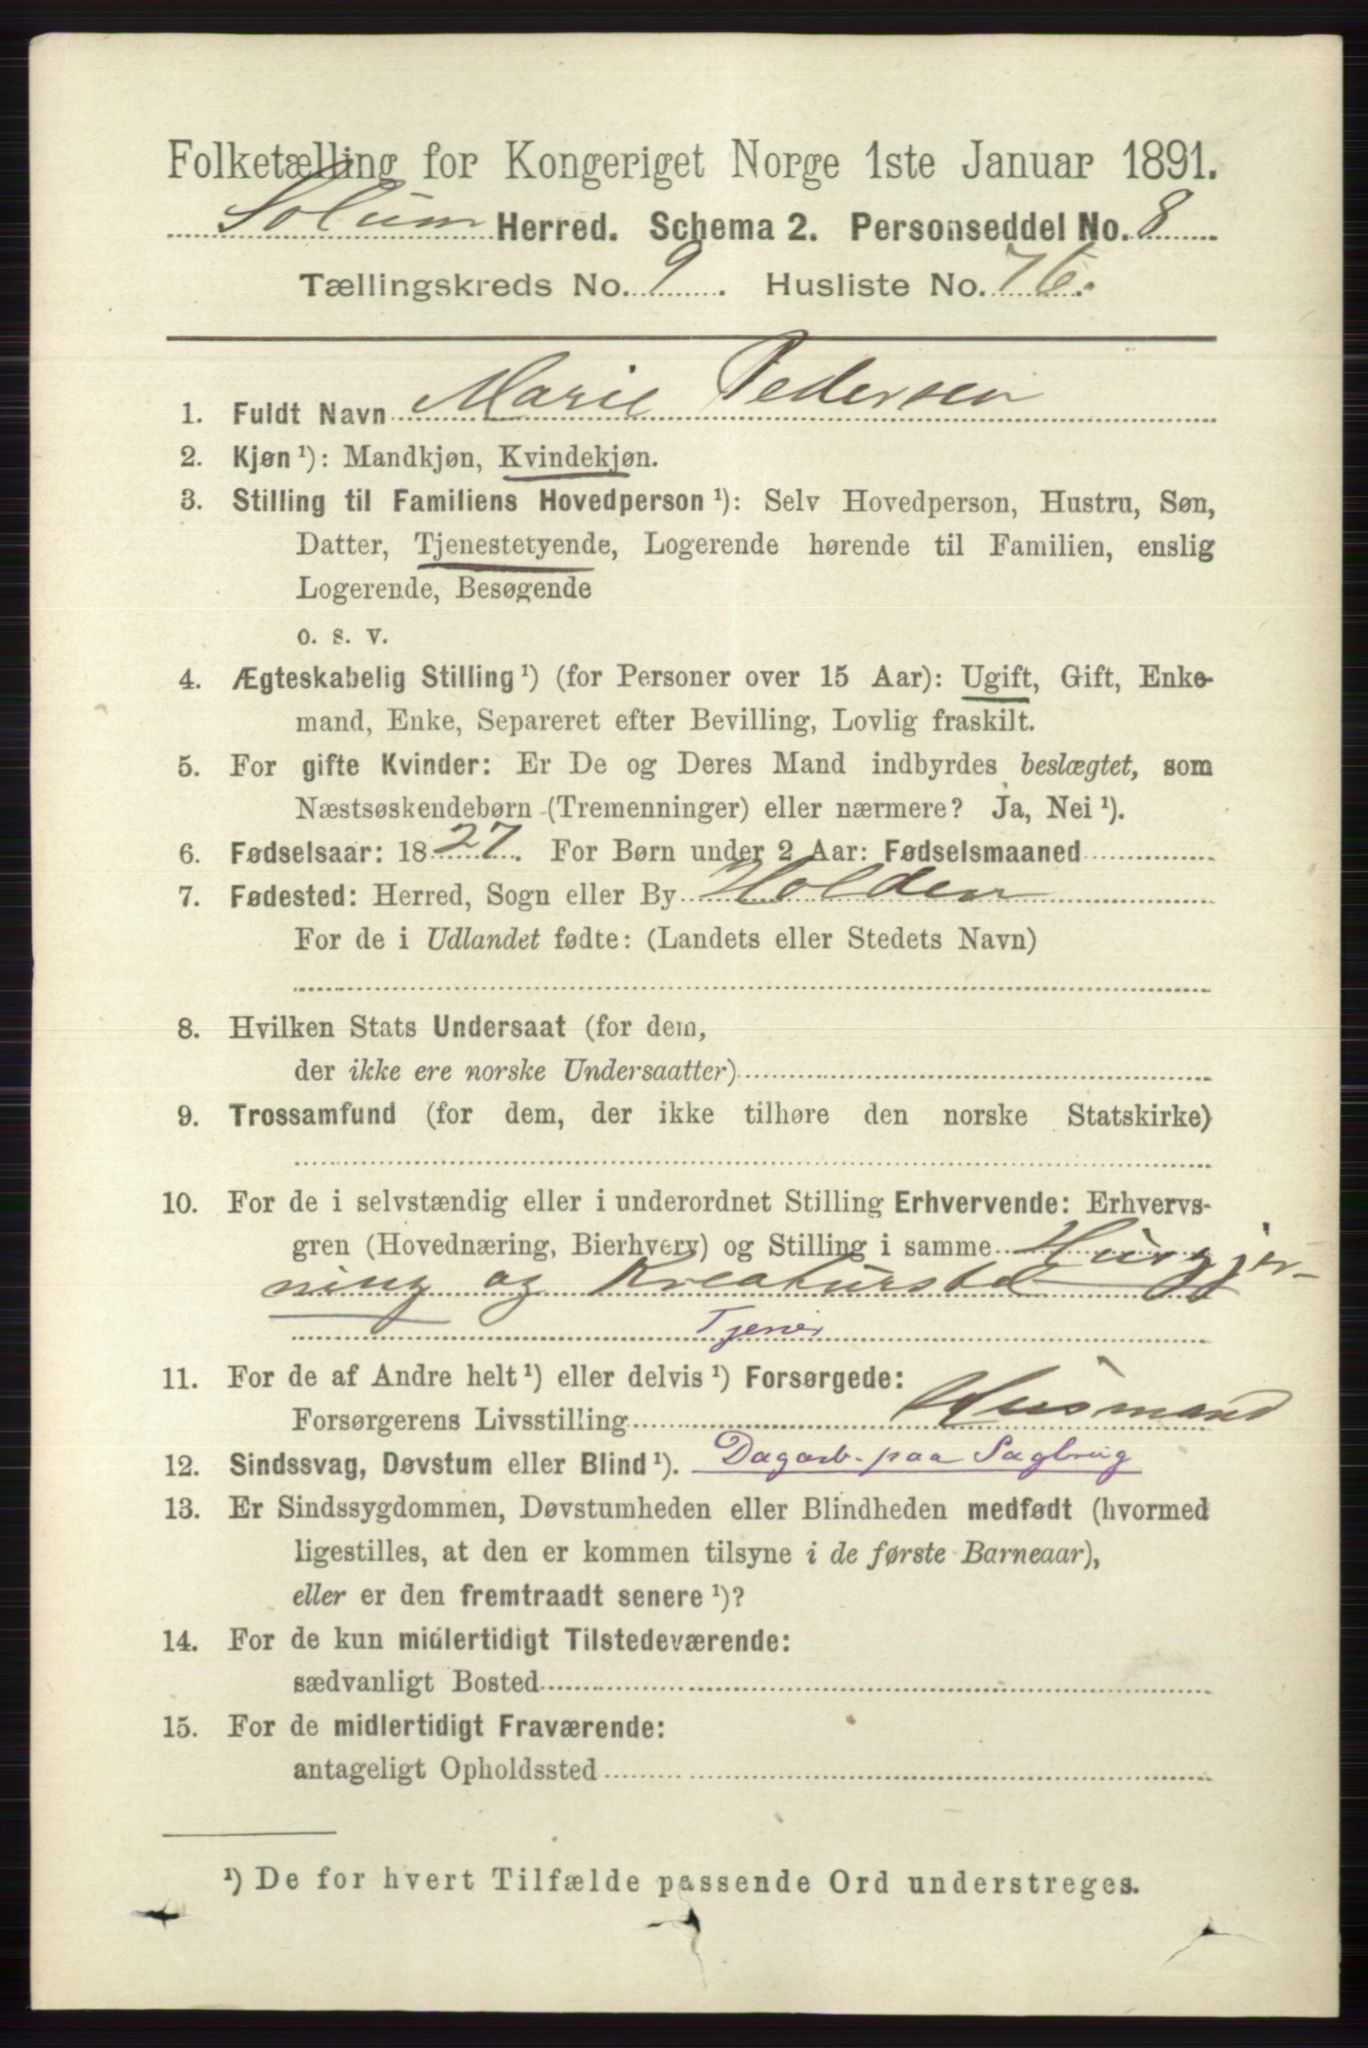 Folketælling for Kongeriget Norge 1ste Januar 1891.
Solum Herred. Schema 2. Personseddel No. 8
Tællingskreds No. 9. Husliste No. 76.
1. Fuldt Navn Marie Pedersen
2. Kjøn ¹): Mandkjøn, Kvindekjøn.
3. Stilling til Familiens Hovedperson ¹): Selv Hovedperson, Hustru, Søn,
Datter, Tjenestetyende, Logerende hørende til Familien, enslig
Logerende, Besøgende
o. s. v.
4. Ægteskabelig Stilling ¹) (for Personer over 15 Aar): Ugift, Gift, Enke-
mand, Enke, Separeret efter Bevilling, Lovlig fraskilt.
5. For gifte Kvinder: Er De og Deres Mand indbyrdes beslægtet, som
Næstsøskendebørn (Tremenninger) eller nærmere? Ja, Nei ¹).
6. Fødselsaar: 1827. For Børn under 2 Aar: Fødselsmaaned
7. Fødested: Herred, Sogn eller By Holden
For de i Udlandet fødte: (Landets eller Stedets Navn)
8. Hvilken Stats Undersaat (for dem,
der ikke ere norske Undersaatter)
9. Trossamfund (for dem, der ikke tilhøre den norske Statskirke)
10. For de i selvstændig eller i underordnet Stilling Erhvervende: Erhvervs-
gren (Hovednæring, Bierhverv) og Stilling i samme Husgjer-
ning og Kreaturstel
Tjener
11. For de af Andre helt ¹) eller delvis ¹) Forsørgede:
Forsørgerens Livsstilling Husmand
12. Sindssvag, Døvstum eller Blind ¹). Dagarb. paa Sagbrug
13. Er Sindssygdommen, Døvstumheden eller Blindheden medfødt (hvormed
ligestilles, at den er kommen tilsyne i de første Barneaar),
eller er den fremtraadt senere ¹)?
14. For de kun midlertidigt Tilstedeværende:
sædvanligt Bosted
15. For de midlertidigt Fraværende:
antageligt Opholdssted
¹) De for hvert Tilfælde passende Ord understreges.